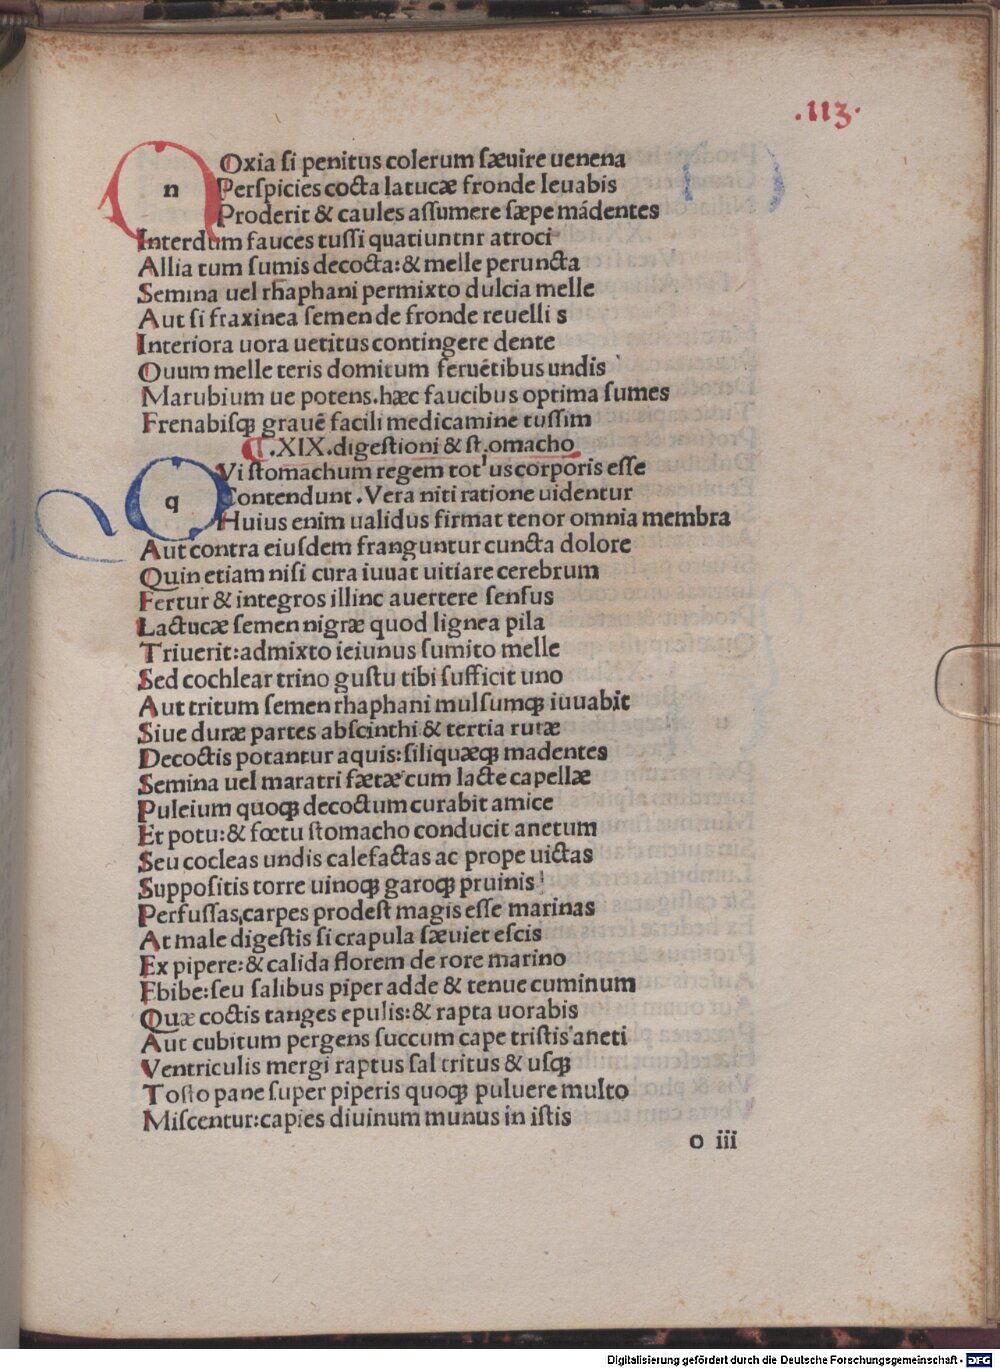 .113.
n Oxia si penitus colerum sæuire uenena
Perspicies cocta latucæ fronde leuabis
Proderit & caules assumere sæpe mádentes
Interdum fauces tussi quatiuntnr atroci
Allia tum sumis decocta: & melle peruncta
Semina uel rhaphani permixto dulcia melle
Aut si fraxinea semen de fronde reuelli s
Interiora uora uetitus contingere dente
Ouum melle teris domitum feruētibus undis
Marubium ue potens. hæc faucibus optima sumes
Frenabisqꝫ grauē facili medicamine tussim
.XIX. digestioni & st.omacho
q Vi stomachum regem tot'us corporis esse
Contendunt. Vera niti ratione uidentur
Huius enim ualidus firmat tenor omnia membra
Aut contra eiusdem franguntur cuncta dolore
Quin etiam nisi cura iuuat uitiare cerebrum
Fertur & integros illinc auertere sensus
Lactucæ semen nigræ quod lignea pila
Triuerit: admixto ieiunus sumito melle
Sed cochlear trino gustu tibi sufficit uno
Aut tritum semen rhaphani mulsumqꝫ iuuabit
Siue duræ partes abscinthi & tertia rutæ
Decoctis potantur aquis: siliquæqꝫ madentes
Semina uel maratri fætæ cum lacte capellæ
Puleium quoqꝫ decoctum curabit amice
Et potu: & fœtu stomacho conducit anetum
Seu cocleas undis calefactas ac prope uictas
Suppositis torre uinoqꝫ garoqꝫ pruinis
Perfussas, carpes prodest magis esse marinas
At male digestis si crapula sæuiet escis
Ex pipere: & calida florem de rore marino
Ebibe: seu salibus piper adde & tenue cuminum
Quæ coctis tanges epulis: & rapta uorabis
Aut cubitum pergens succum cape tristis aneti
Ventriculis mergi raptus sal tritus & usqꝫ
Tosto pane super piperis quoqꝫ puluere multo
Miscentur: capies diuinum munus in istis
o iii
Digitalisierung gefördert durch die Deutsche Forschungsgemeinschaft - DFG